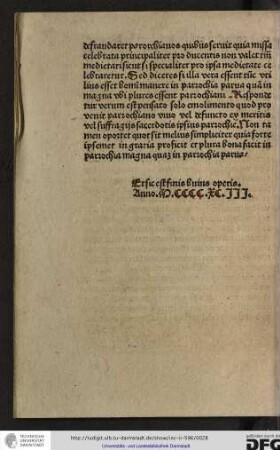 defraudaret porochianos quibus seruit quia missa
celebrata principaliter pro ducentis non valet tm̄
medietati sicut si specialiter pro ipsa medietate ce
lebraretur. Sed diceres si illa vera essent tūc vti
lius esset homī manere in parrochia parua quā in
magna vbi plures essent parrochiani. Responde
tur verum est pensato solo emolimento quod pro
venit parrochiano viuo vel defuncto ex meritis
vel suffragijs sacerdotis ipsius parrochie. Non ta
men oportet quot sit melius simpliciter quia forte
ipsemet in gratia proficit et plura bona facit in
parrochia magna quaz in parrochia parua
Et sic est finis huius operis.
Anno. M. CCCC. XC. III.
http://tudigit.ulb.tu-darmstadt.de/show/inc-ii-596/0028
Universitäts- und Landesbibliothek Darmstadt
DFG